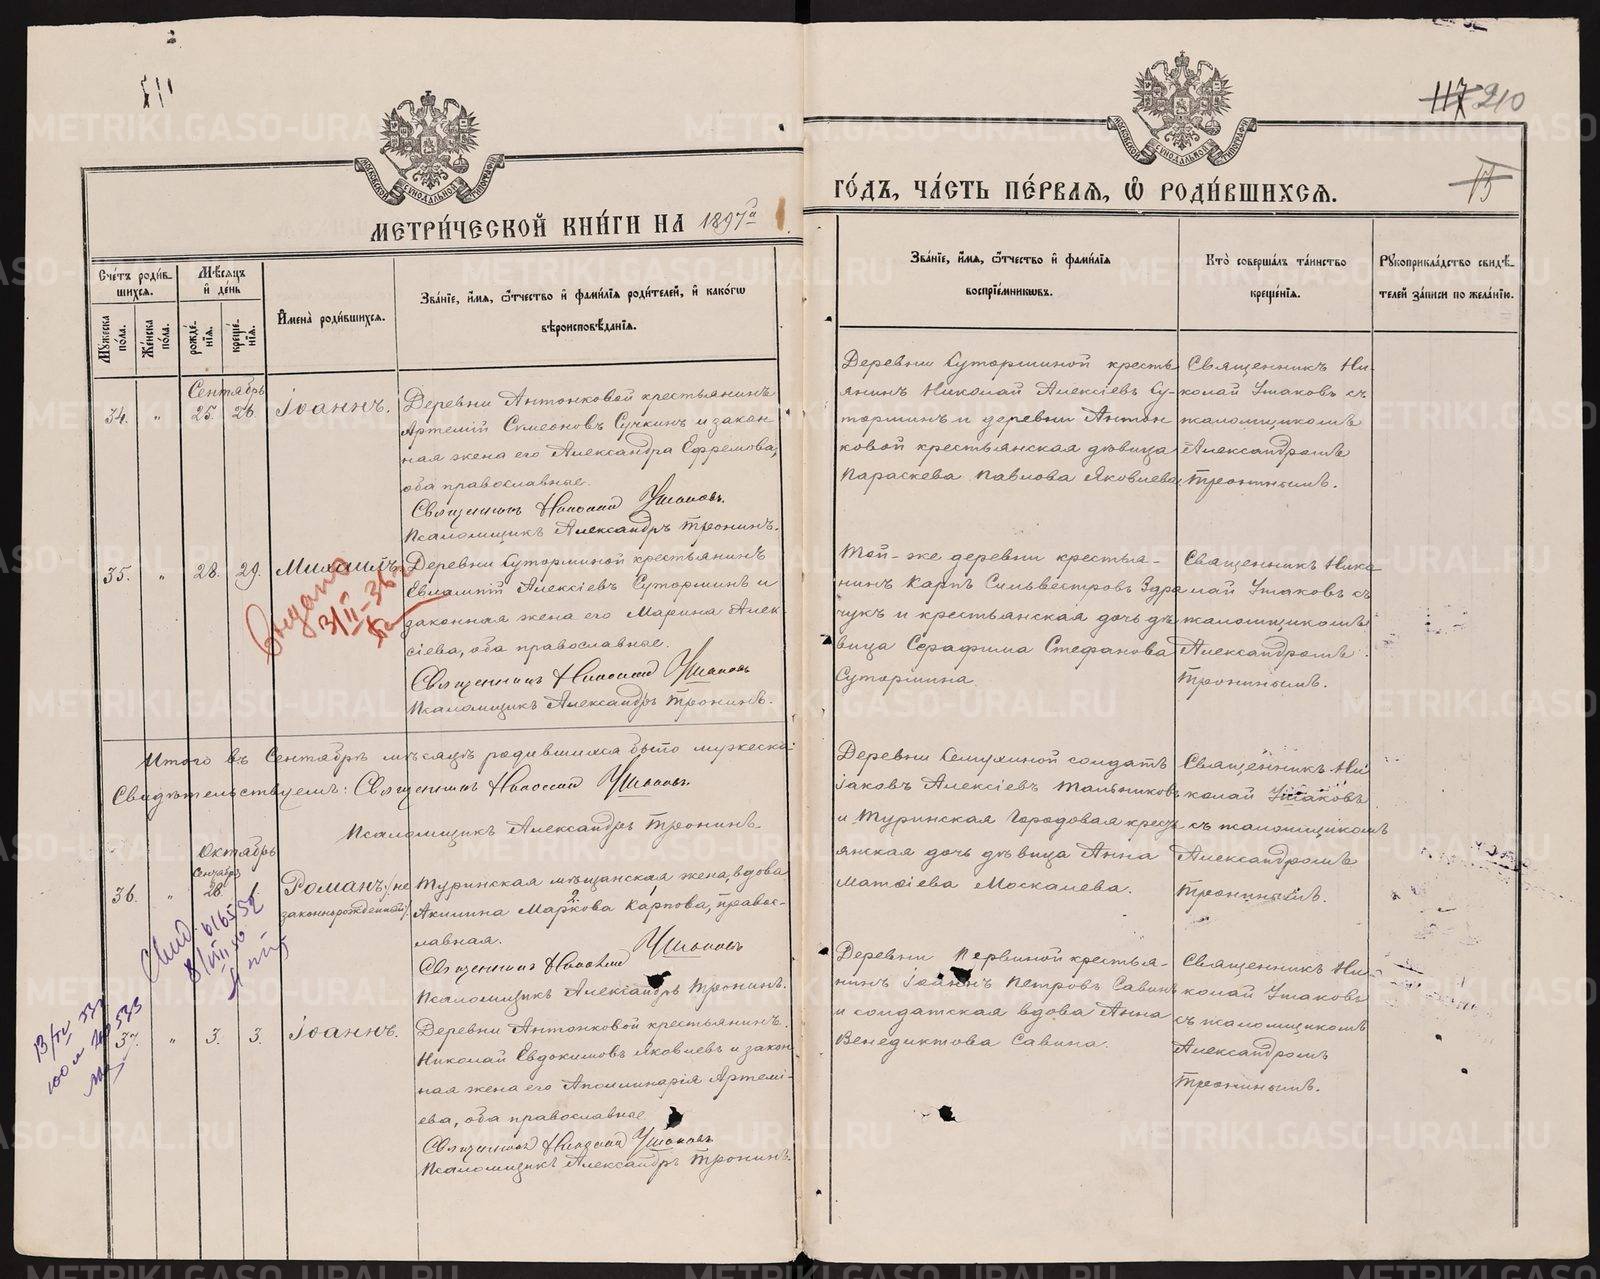 117 210
15
МЕТРИ́ЧЕСКОЙ КНИ́ГИ НА 1897й
ГО́ДЪ, ЧА́СТЬ ПЕ́РВАЯ, Ѿ РОДИ́ВШИХСЯ.
МОСКОВСКОЙ СУНОДАЛЬНОЙ ТИПОГРАФІИ
МОСКОВСКОЙ СУНОДАЛЬНОЙ ТИПОГРАФІИ
Сче́тъ роди́вшихся.
Му́жеска по́ла.
Же́нска по́ла.
Мѣ́сяцъ и де́нь
рожде́нїя.
креще́нїя.
И҆мена̀ роди́вшихся.
Зва́нїе, и҆́мя, ѻ҆́тчество и҆ фамилїя роди́телей, и҆ како́гѡ
вѣроисповѣ́данїя.
Зва́нїе, и҆́мя, ѻ҆́тчество и҆ фами́лїя
воспрїе́мникѡвъ.
Кто̀ соверша́лъ та́инство
креще́нїя.
Рꙋкоприкла́дство свидѣ́-
телей за́писи по жела́нїю.
Сентябрь
34. " 25. 26. Іоаннъ.
Деревни Антонковой крестьянинъ
Артемій Симеоновъ Сучкинъ и закон
ная жена его Александра Ефремова,
оба православные.
Священникъ Николай Ушаковъ.
Псаломщикъ Александръ Тронинъ.
Деревни Суторминой кресть
янинъ Николай Алексіевъ Су-
торминъ и деревни Антон
ковой крестьянская дѣвица
Параскева Павлова Яковлева
Священникъ Ни-
колай Ушаковъ съ
псаломщикомъ
Александромъ
Тронинымъ.
35. " 28. 29. Михаилъ
Деревни Суторминой крестьянинъ
Евлампій Алексіевъ Суторминъ и
законная жена его Марина Алек-
сіева, оба православные.
Священникъ Николай Ушаковъ
Псаломщикъ Александръ Тронинъ.
Выдано
3/II-36
Той-же деревни крестья-
нинъ Карпъ Сильвестровъ Здра
чукъ и крестьянская дочь дѣ
вица Серафима Стефанова
Сутормина
Священникъ Нико
лай Ушаковъ съ
псаломщикомъ
Александромъ
Тронинымъ.
Итого въ Сентябрѣ мѣсяцѣ родившихся было мужеска:
Свидѣтельствуемъ: Священникъ Николай Ушаковъ
Псаломщикъ Александръ Тронинъ.
Октябрь
Сентября
36. " 28 1. Романъ (незаконнорожденный)
Туринская мѣщанская жена, вдова
Акилина Маркова Карпова, правос-
лавная.
Священникъ Николай Ушаковъ
Псаломщикъ Александръ Тронинъ.
Деревни Семухиной солдатъ
Іаковъ Алексіевъ Тальниковъ
и Туринская городовая крест
янская дочь дѣвица Анна
Матѳіева Москалева.
Священникъ Ни
колай Ушаковъ
съ псаломщикомъ
Александромъ
Тронинымъ.
37. " 3. 3. Іоаннъ.
Деревни Антонковой крестьянинъ.
Николай Евдокимовъ Яковлевъ и закон
ная жена его Аполлинарія Артемі-
ева, оба православные
Священникъ Николай Ушаковъ
Псаломщикъ Александръ Тронинъ.
Деревни Первиной крестья-
нинъ Іоаннъ Петровъ Савинъ
и солдатская вдова Анна
Венедиктова Савина.
Священникъ Ни-
колай Ушаковъ
съ псаломщикомъ
Александромъ
Тронинымъ.
METRIKI.GASO-URAL.RU